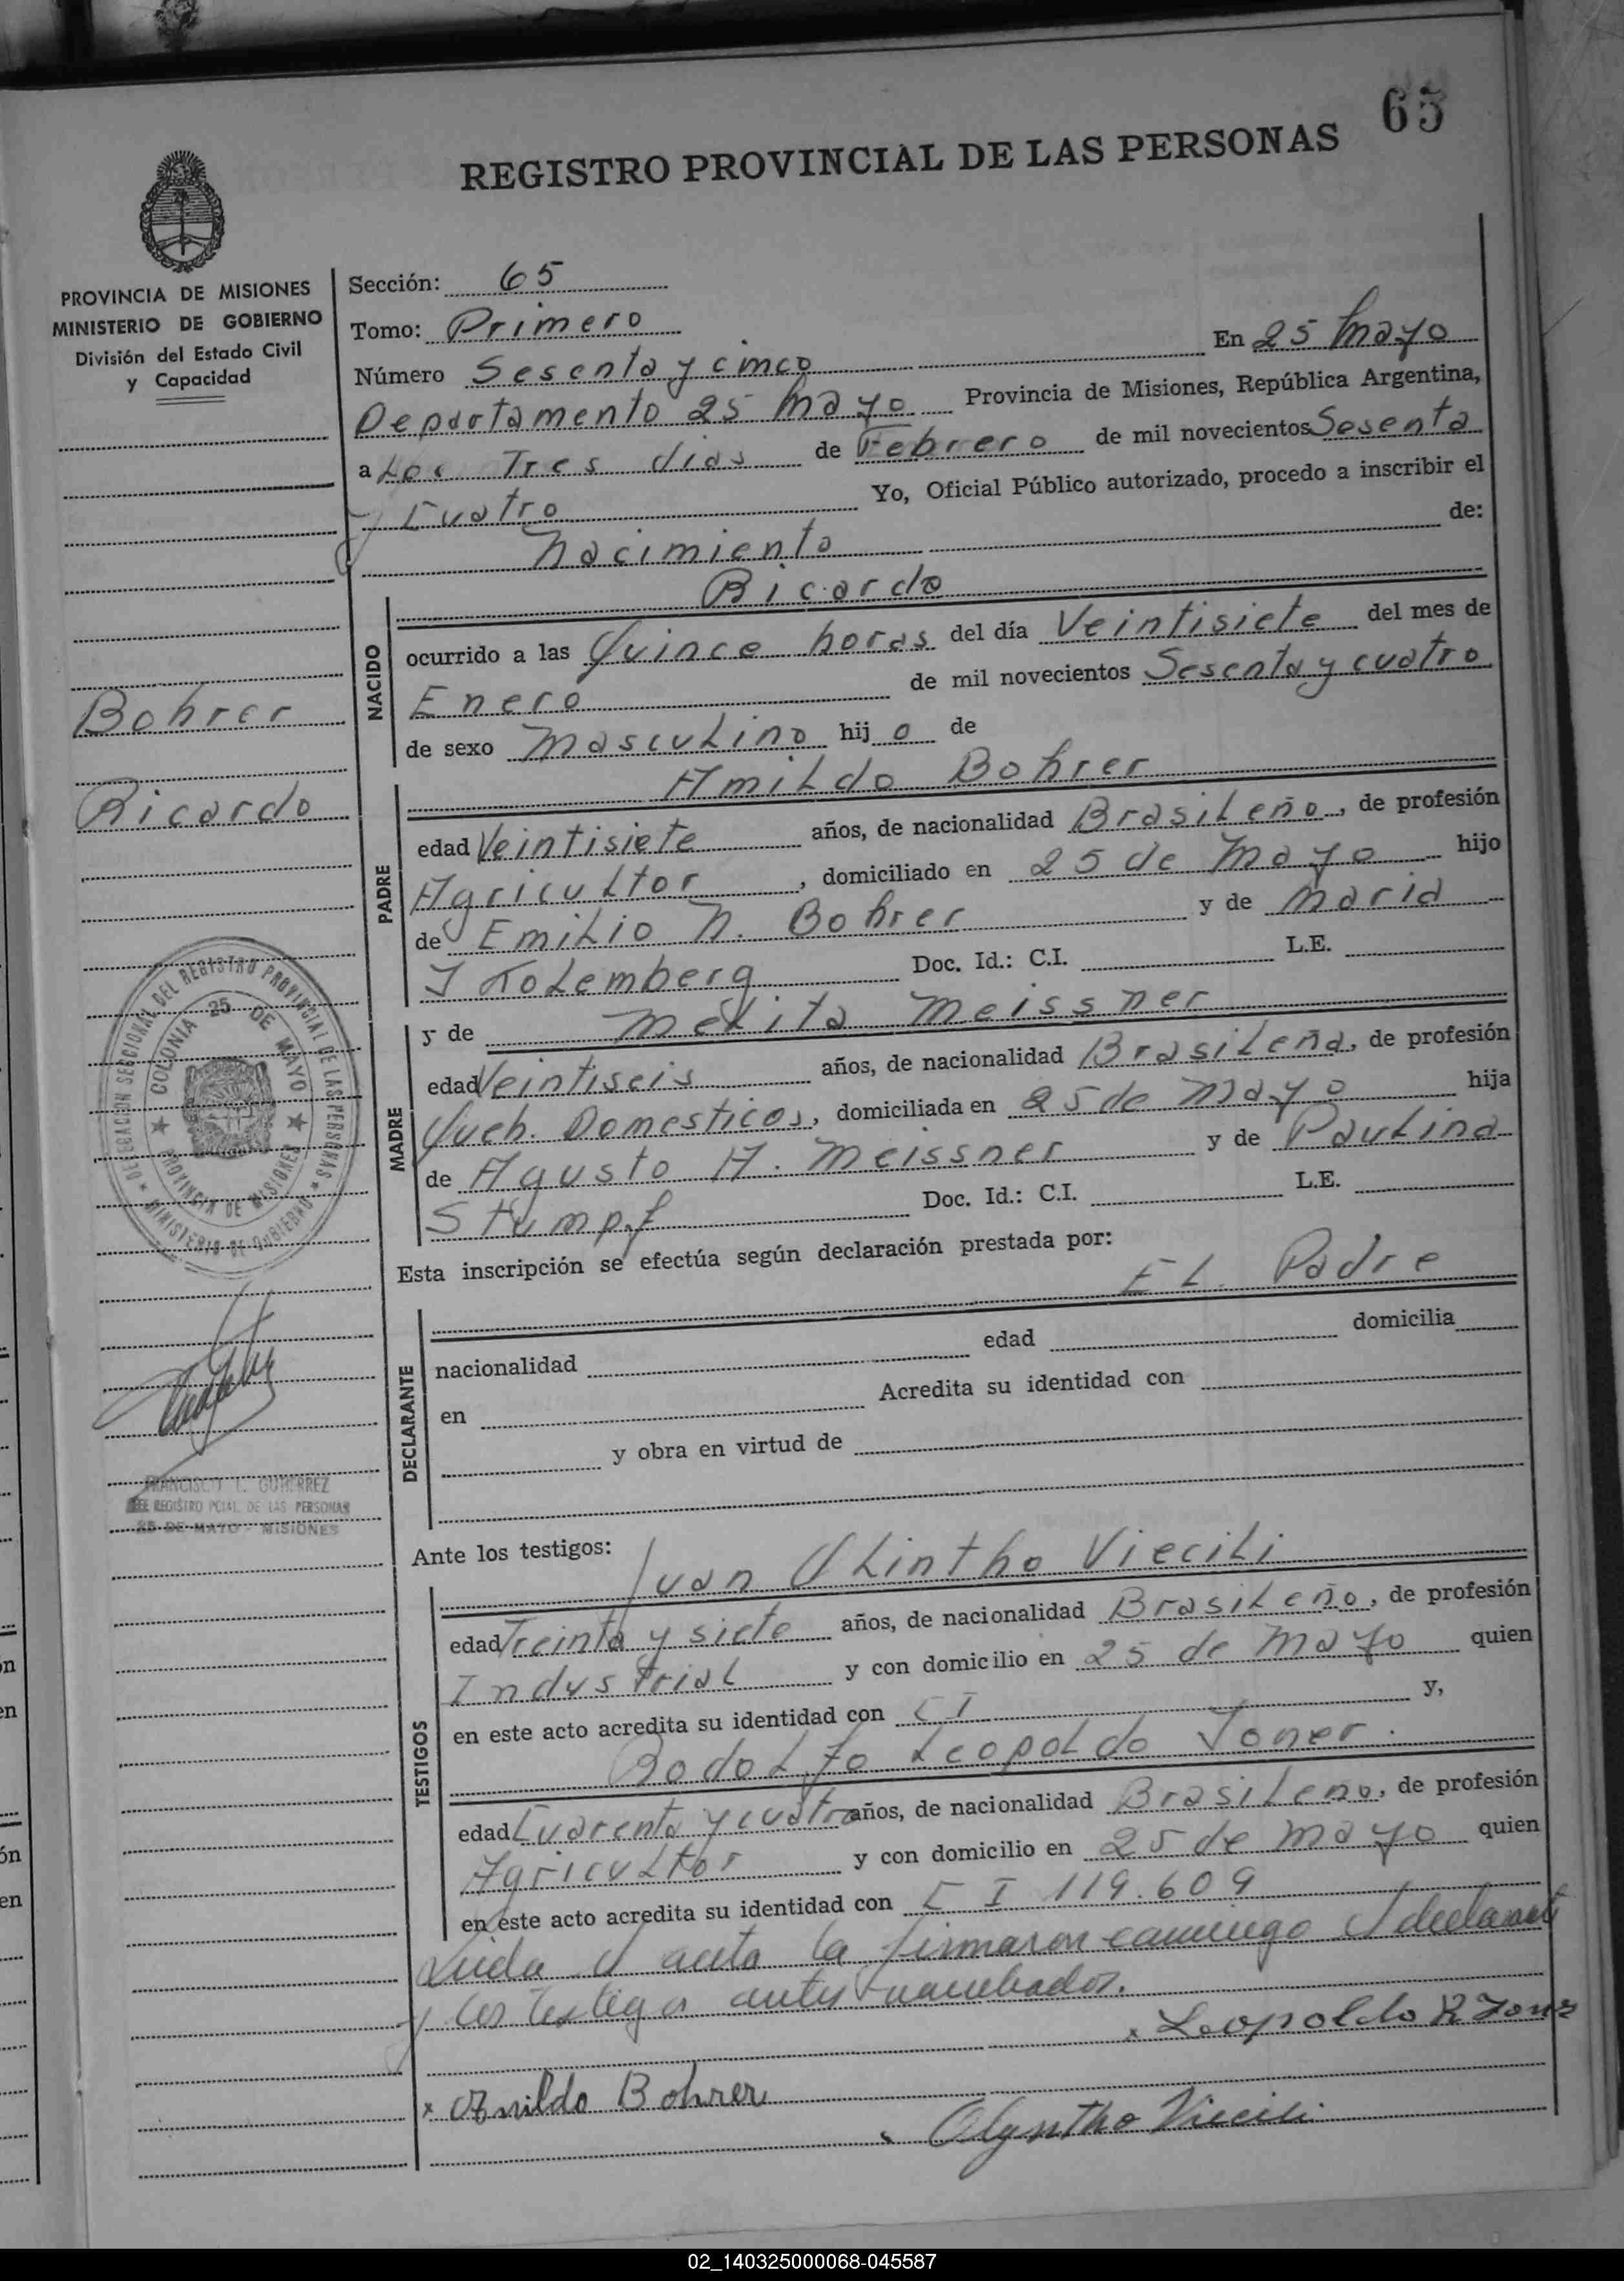 65
REGISTRO PROVINCIAL DE LAS PERSONAS
PROVINCIA DE MISIONES
MINISTERIO DE GOBIERNO
División del Estado Civil
y Capacidad
Bohrer
Ricardo
DELEGACION SECCIONAL DEL REGISTRO PROVINCIAL DE LAS PERSONAS
MINISTERIO DE GOBIERNO
COLONIA 25 DE MAYO
PROVINCIA DE MISIONES
FRANCISCO GUTIERREZ
REGISTRO PCIAL. DE LAS PERSONAS
25 DE MAYO - MISIONES
Sección: 65
Tomo: Primero
Número Sesenta y cinco En 25 Mayo
Departamento 25 Mayo Provincia de Misiones, República Argentina,
a Los Tres dias de Febrero de mil novecientos Sesenta
y Cuatro Yo, Oficial Público autorizado, procedo a inscribir el
Nacimiento de:
NACIDO
Ricardo
ocurrido a las Quince horas del día Veintisiete del mes de
Enero de mil novecientos Sesenta y cuatro
de sexo Masculino hij o de
PADRE
Amildo Bohrer
edad Veintisiete años, de nacionalidad Brasileño, de profesión
Agricultor, domiciliado en 25 de Mayo hijo
de Emilio N. Bohrer y de Maria
Doc. Id.: C.I. L.E.
MADRE
y de Melita Meissner
edad Veintiseis años, de nacionalidad Brasileña, de profesión
Queh. Domesticos, domiciliada en 25 de Mayo hija
de Agusto A. Meissner y de Paulina
Stumpf Doc. Id.: C.I. L.E.
Esta inscripción se efectúa según declaración prestada por:
DECLARANTE
El Padre
nacionalidad edad domicilia
en Acredita su identidad con
y obra en virtud de
Ante los testigos:
TESTIGOS
Juan Olintho Viecili
edad Treinta y siete años, de nacionalidad Brasileño, de profesión
Industrial y con domicilio en 25 de Mayo quien
en este acto acredita su identidad con C I y,
Rodolfo Leopoldo Joner.
edad Cuarenta y cuatro años, de nacionalidad Brasileno, de profesión
Agricultor y con domicilio en 25 de Mayo quien
en este acto acredita su identidad con C I 119.609
Leida el acta la firmaron conmigo el declarante
y los testigos antes nombrados.
x Leopoldo R Joner
x Amildo Bohrer
Olyntho Viecili
02_140325000068-045587